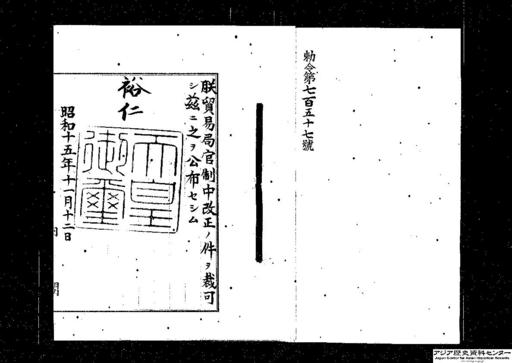 勅令第七百五十七號
朕貿易局官制中改正ノ件ヲ裁可
シ茲ニ之ヲ公布セシム
裕仁
天皇
御璽
昭和十五年十一月十二日
アジア歴史資料センター
Japan Center for Asian Historical Records